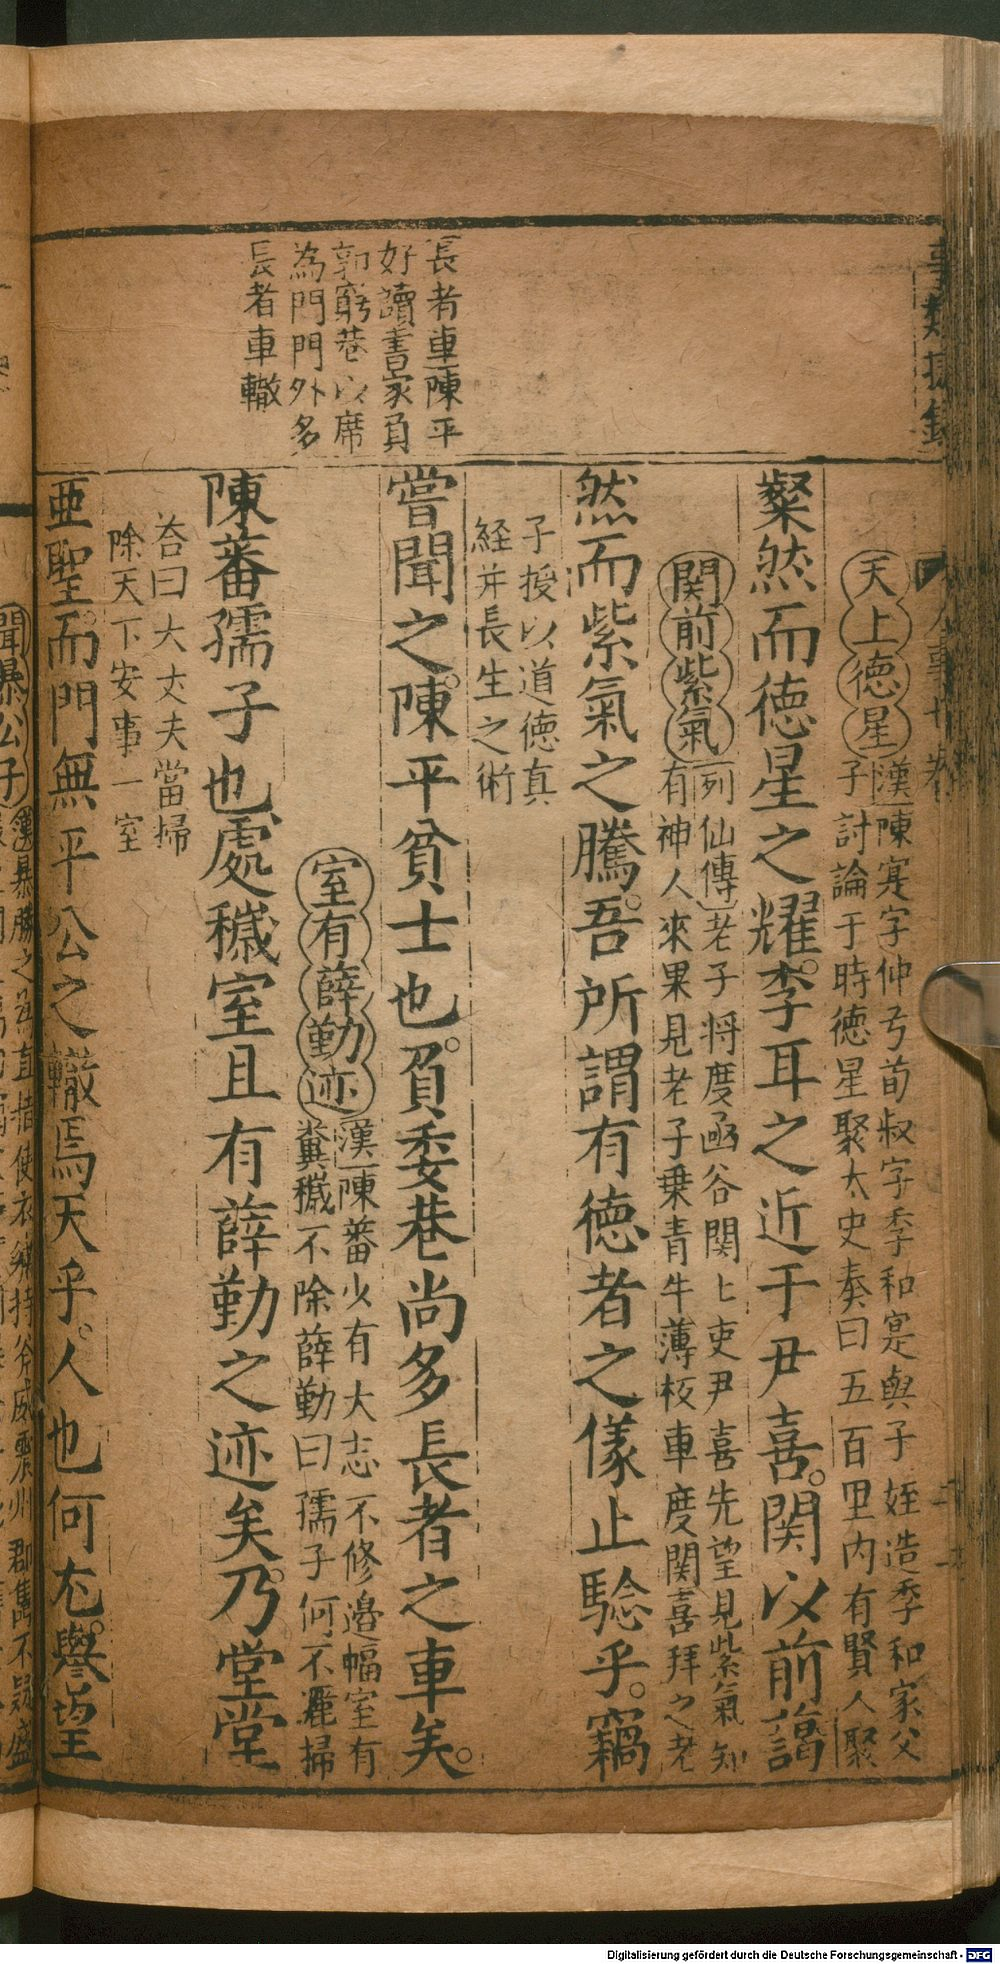 長者車陳平
好讀書家負
郭窮巷以席
為門門外多
長者車轍
天上德星漢陳寔字仲弓荀叔字季和寔與子姪造季和家父
子討論于時德星聚太史奏曰五百里内有賢人聚
粲然而德星之耀。李耳之近于尹喜。関以前謁
関前紫氣列仙傳老子将度函谷関上吏尹喜先望見紫氣知
有神人來果見老子乗青牛薄板車度関喜拜之老
然而紫氣之騰。吾所謂有德者之㨾止騐乎。竊
子授以道德真
経并長生之術
嘗聞之。陳平貧士也。負委巷尚多長者之車矣。
室有薛勤迹漢陳蕃少有大志不修邉幅室有
糞穢不除薛勤曰孺子何不灑掃
陳蕃孺子也處穢室且有薛勤之迹矣。乃堂堂
荅曰大丈夫當掃
除天下安事一室
亜聖。而門無平公之轍焉天乎。人也何尤。譽望
聞暴公子漢暴勝之為直指使衣繡持斧威震州郡雋不疑盛
Digitalisierung gefördert durch die Deutsche Forschungsgemeinschaft - DFG